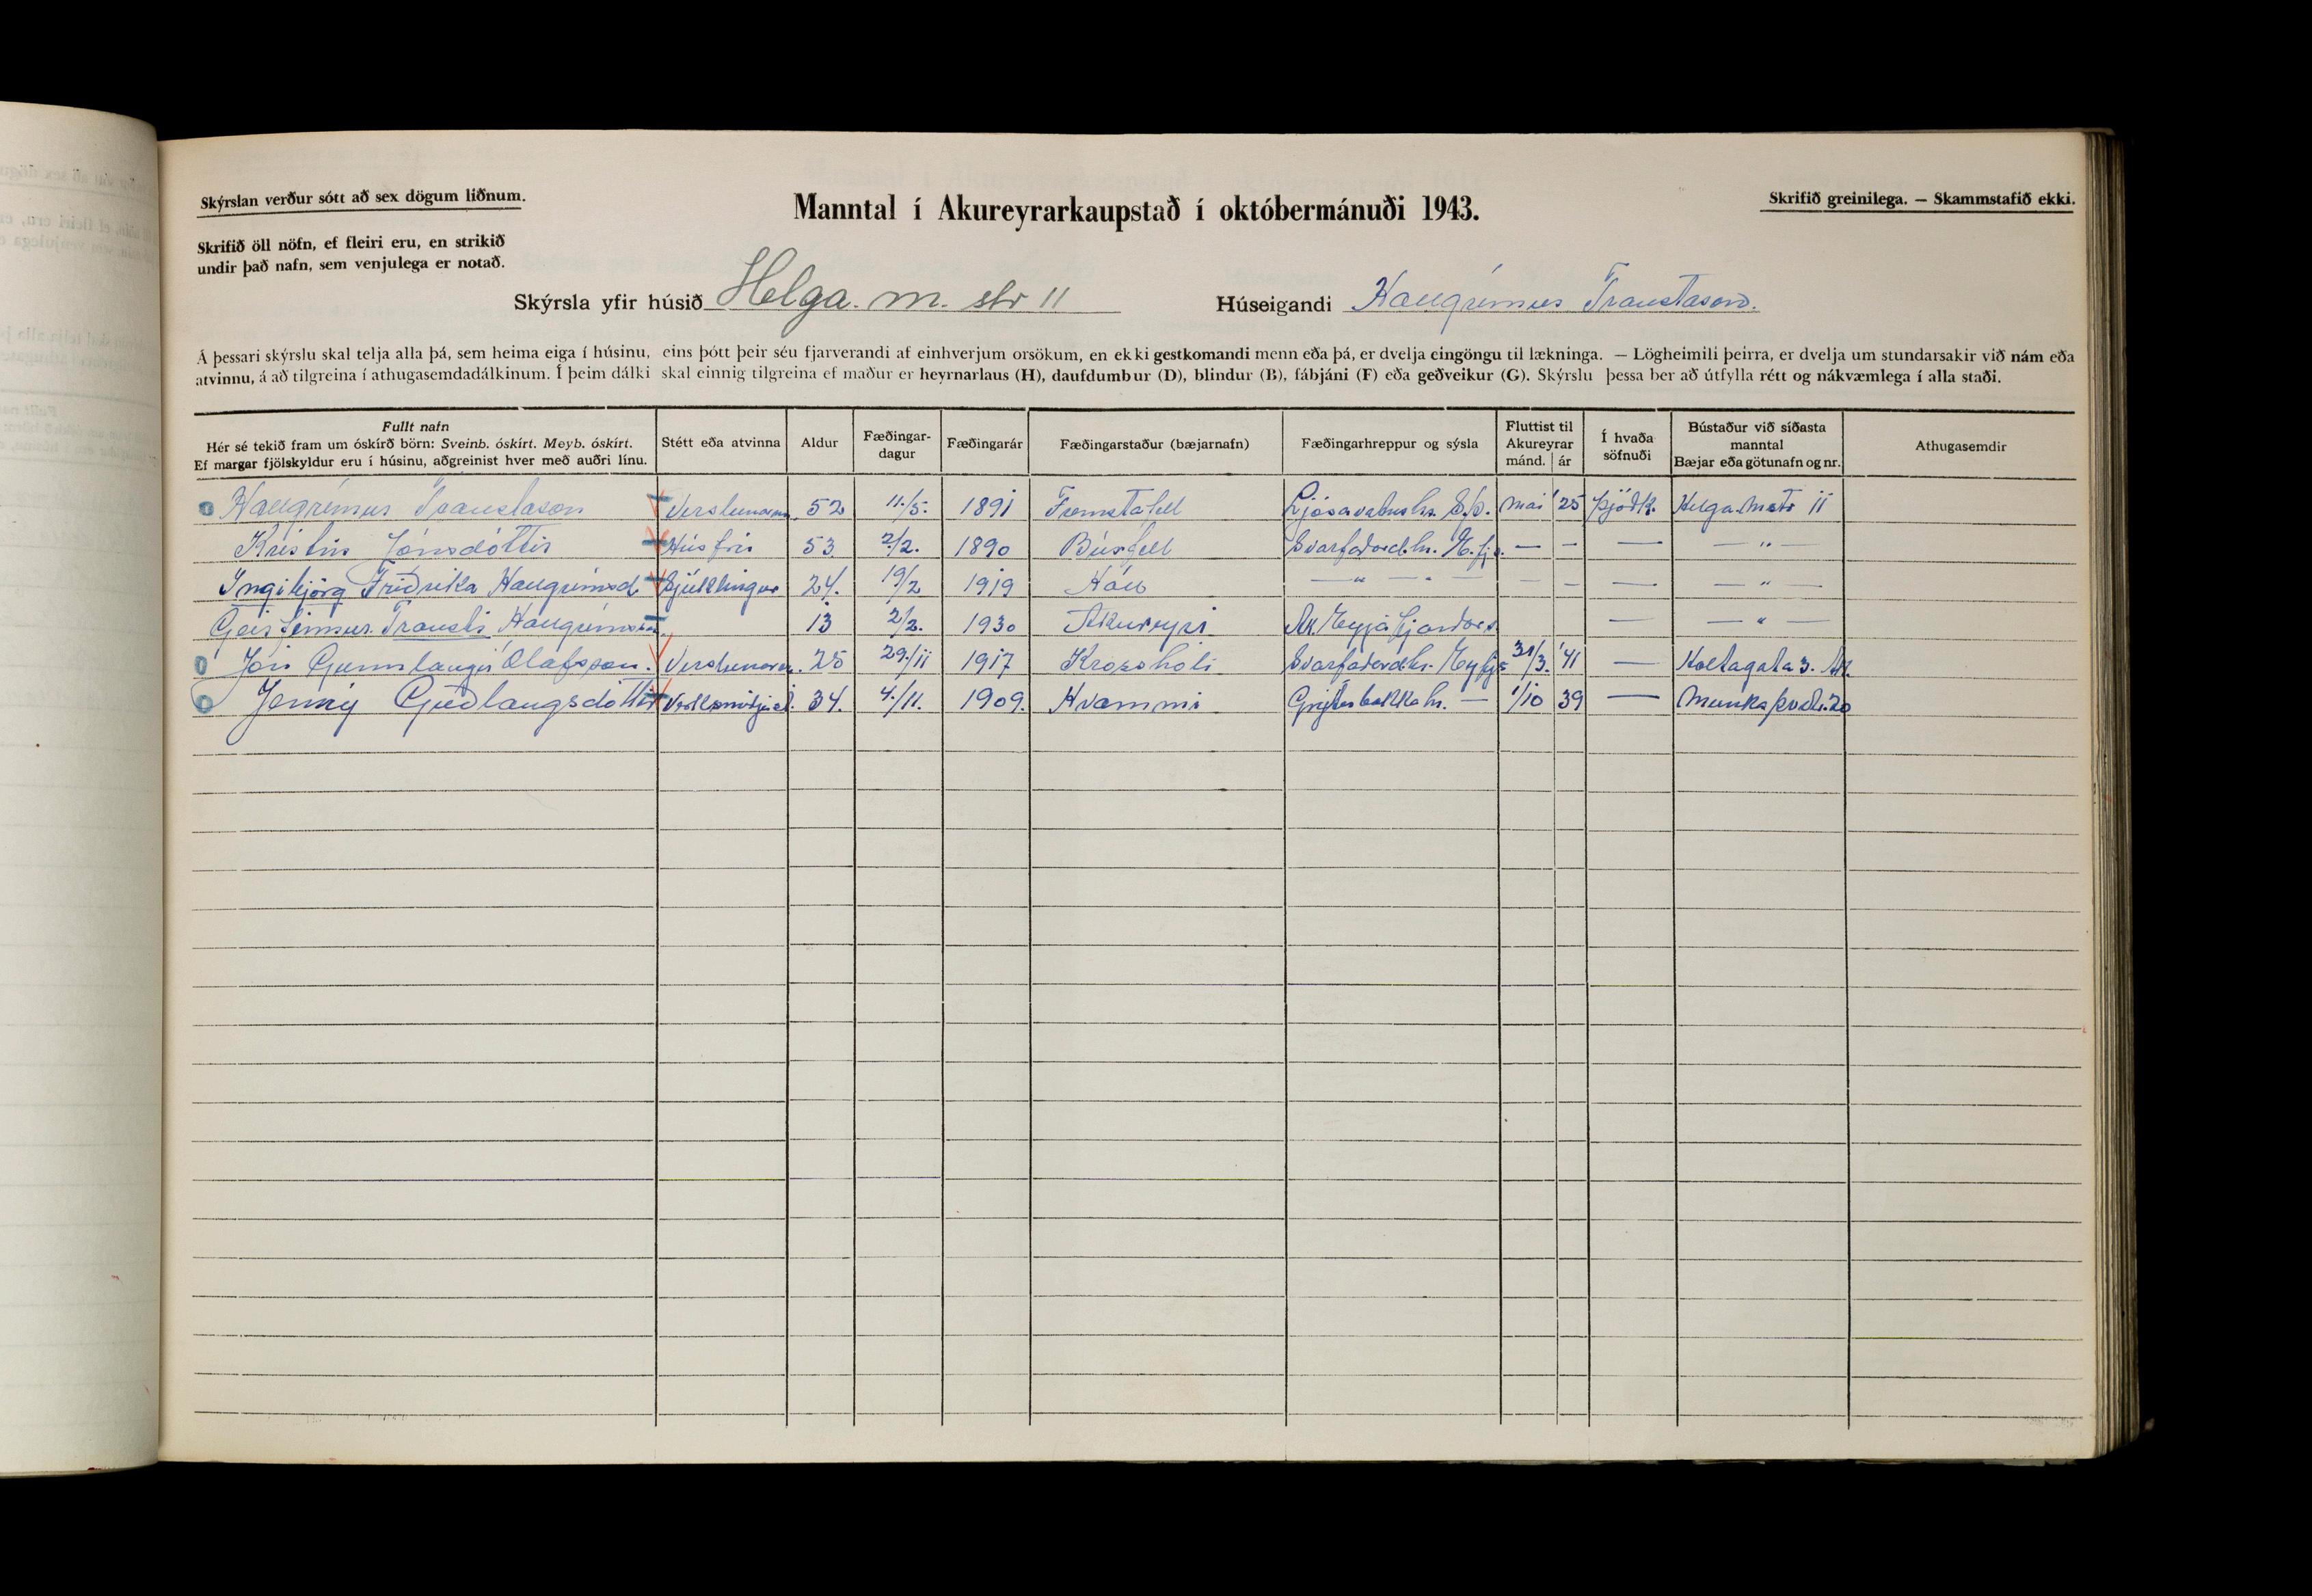 Skýrslan verður sótt að sex dögum liðnum.
Manntal í Akureyrarkaupstað í októbermánuði 1943.
Skrifið greinilega. — Skammstafið ekki.
Skrifið öll nöfn, ef fleiri eru, en strikið
undir það nafn, sem venjulega er notað.
Skýrsla yfir húsið Helga. m. str 11 Húseigandi Hallgrímur Traustason.
Á þessari skýrslu skal telja alla þá, sem heima eiga í húsinu, eins þótt þeir séu fjarverandi af einhverjum orsökum, en ekki gestkomandi menn eða þá, er dvelja eingöngu til lækninga. — Lögheimili þeirra, er dvelja um stundarsakir við nám eða
atvinnu, á að tilgreina í athugasemdadálkinum. Í þeim dálki skal einnig tilgreina ef maður er heyrnarlaus (H), daufdumbur (D), blindur (B), fábjáni (F) eða geðveikur (G). Skýrslu þessa ber að útfylla rétt og nákvæmlega í alla staði.
Fullt nafn
Hér sé tekið fram um óskírð börn: Sveinb. óskírt. Meyb. óskírt.
Ef margar fjölskyldur eru í húsinu, aðgreinist hver með auðri línu.
Stétt eða atvinna
Aldur
Fæðingar-
dagur
Fæðingarár
Fæðingarstaður (bæjarnafn)
Fæðingarhreppur og sýsla
Fluttist til
Akureyrar
mánd. ár
Í hvaða
söfnuði
Bústaður við síðasta
manntal
Bæjar eða götunafn og nr.
Athugasemdir
Hallgrímur Traustason Verslunarm. 52 11./5. 1891 Fremstafell Ljósavatnshr. S.þ. maí 25 Þjóðk. Helga.mstr 11
Kristín Jónsdóttir Húsfrú 53 2/2. 1890 Búrfell Svarfaðard.hr. E.fj. — — — — " —
Ingibjörg Friðrika Hallgrímsd. Sjúklingur 24. 19/2 1919 Háls — " — " — — — — — " —
Geirfinnur Trausti Hallgrímsson 13 2/2. 1930 Akureyri Ak. Eyjafjarðars. — — " —
Jón Gunnlaugur Ólafsson. Verslunarm. 25 29./11 1917 Krosshóli Svarfaðard.hr. Eyfjs 31/3. '41 — Holtagata 3. Ak.
Jenný Guðlaugsdóttir Verksmiðjust. 34. 4./11. 1909. Hvammi Grýtubakkahr. — 1/10 39 — Munkaþvstr. 20